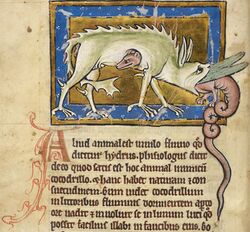 Aliud animal est in nilo flumine qd
dicitur hydrus. phisiologus dicit
de eo quod satis est hoc animal inimicū
cocodrillo. & hanc habet naturam & con
suetudinem. Cum uidet cocodrillum
in litoribus fluminis dormientem aper
to ore uadit & inuoluit se in limum luti qo
possit facilius illabi in faucibus eius.